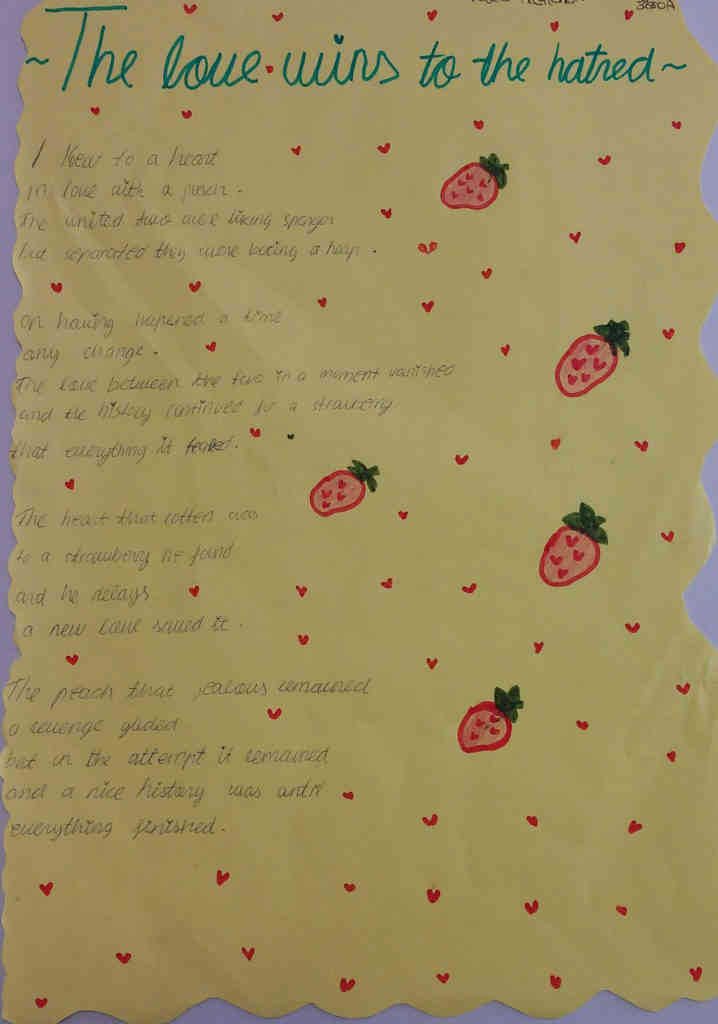 3ºESO A
~The love wins to the hatred~
I knew to a heart
in love with a peach.
The united two were liking sponges
but separated they were boring a harp.
On having hapened a time
any change.
The love between the two in a moment vanished
and the history continued for a strawberry
that everything it
The heart that rotten was
to a strawberry he found
and he delays
a new love saved it.
The peach that jealous remained
a revenge guided
but in the attempt it remained
and a nice history was until
everything finished.